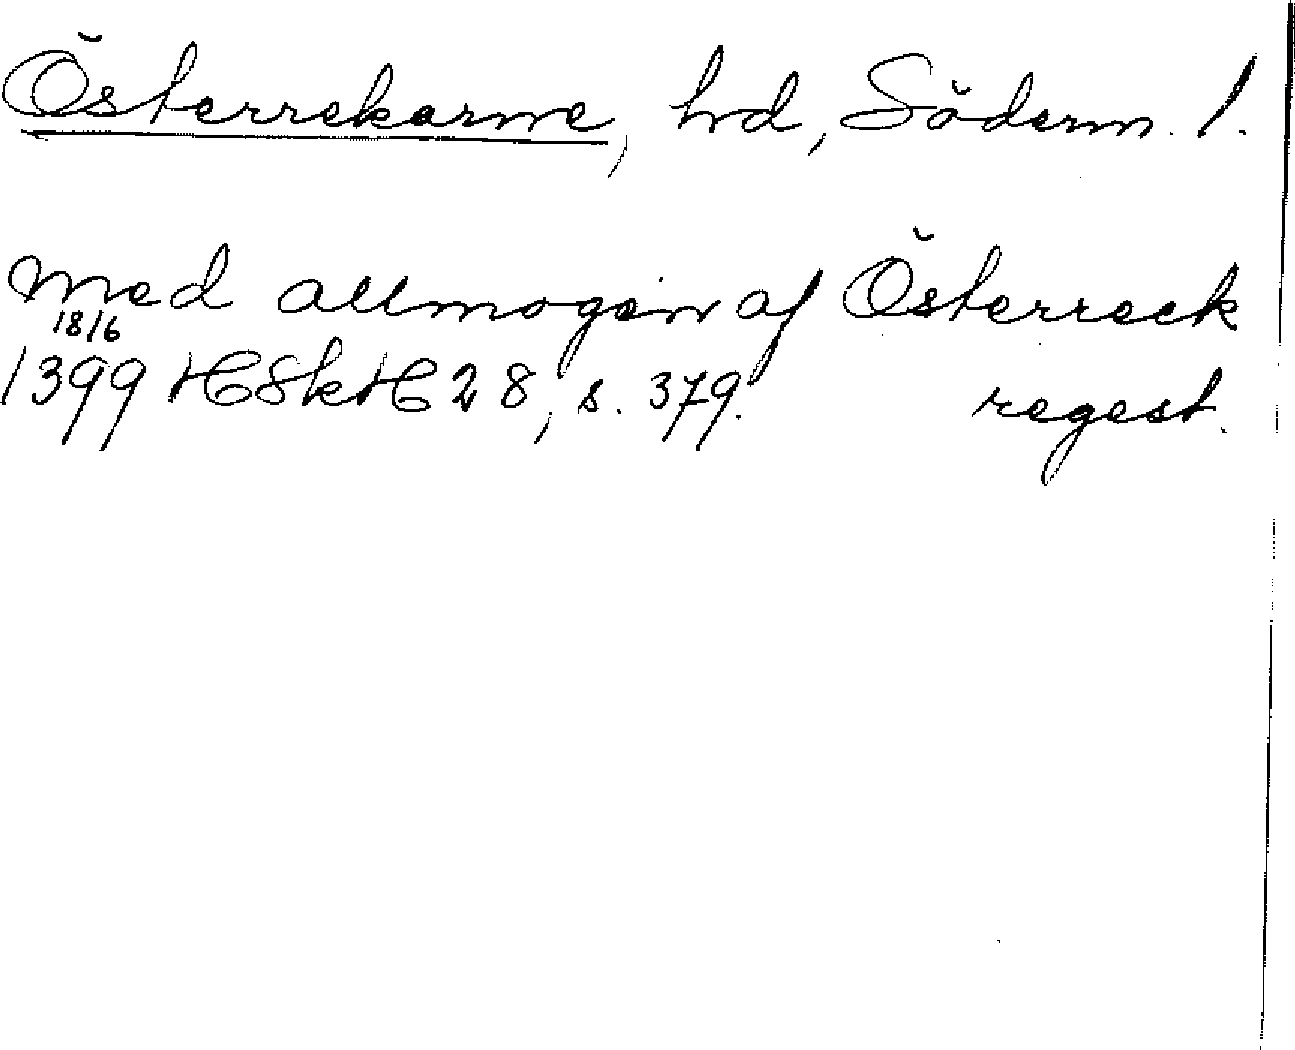 Österrekarne, hd, Söderm. l.
med allmogen af Österreck
18/6
1399 HSkH 28, s. 379. regest.